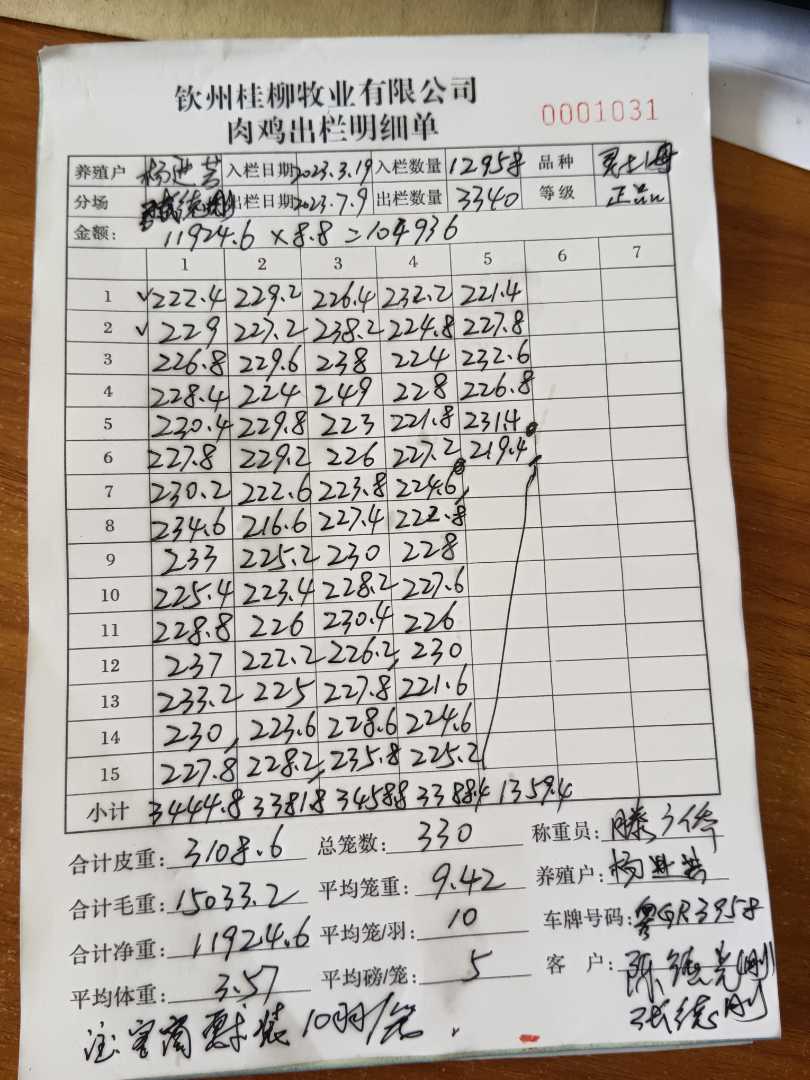 钦州桂柳牧业有限公司
肉鸡出栏明细单 0001031
养殖户 杨进芸 入栏日期 2023.3.19 入栏数量 12958 品种
分场 出栏日期 2023.7.9 出栏数量 3340 等级 正品
金额: 11924.6 × 8.8 = 104936
1 2 3 4 5 6 7
1 √222.4 229.2 226.4 232.2 221.4
2 √229 227.2 238.2 224.8 227.8
3 226.8 229.6 238 224 232.6
4 228.4 224 249 228 226.8
5 230.4 229.8 223 221.8 231.4
6 227.8 229.2 226 227.2 219.4
7 230.2 222.6 223.8 224.6
8 234.6 216.6 227.4 222.8
9 233 225.2 230 228
10 225.4 223.4 228.2 227.6
11 228.8 226 230.4 226
12 237 222.2 226.2 230
13 233.2 225 227.8 221.6
14 230 223.6 228.6 224.6
15 227.8 228.2 235.8 225.2
小计 3444.8 3381.8 3458.8 3388.4 1359.4
合计皮重: 3108.6 总笼数: 330 称重员:
合计毛重: 15033.2 平均笼重: 9.42 养殖户:
合计净重: 11924.6 平均笼/羽: 10 车牌号码: 粤GR3958
平均体重: 3.57 平均磅/笼: 5 客 户: 陈德光
注: 客商要求装10羽/笼. 张德刚